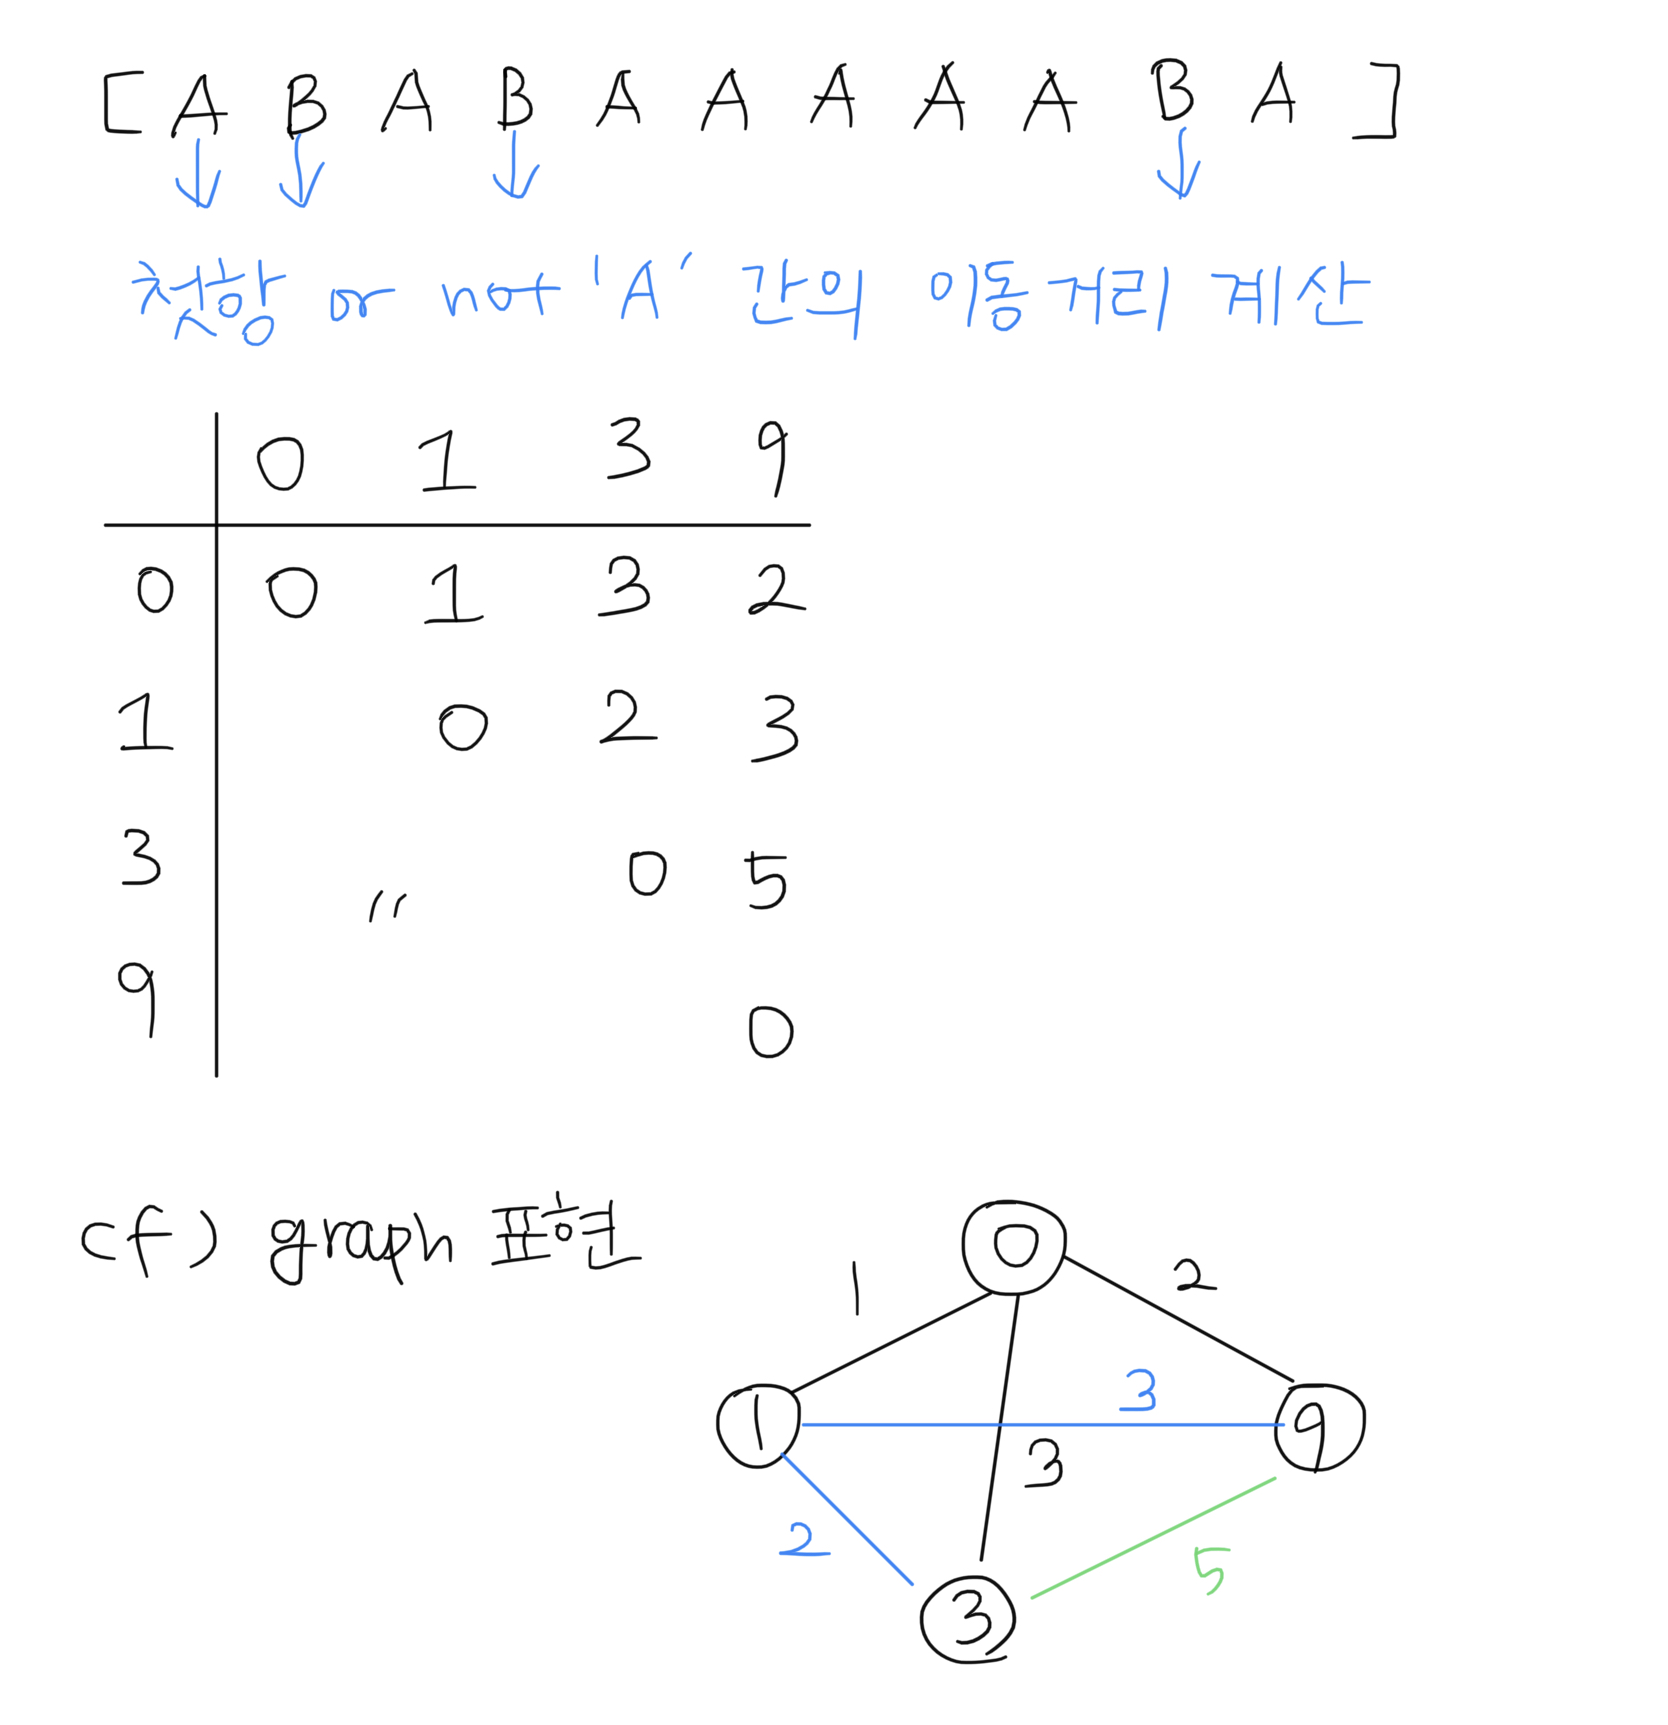 [ A B A B A A A A A B A ]
첫항 or not 'A' 간의 이동거리 계산
0 1 3 9
0 0 1 3 2
1 0 2 3
3 〃 0 5
9 0
cf) graph 표현
0
1 2
3
1 9
3
2 5
3